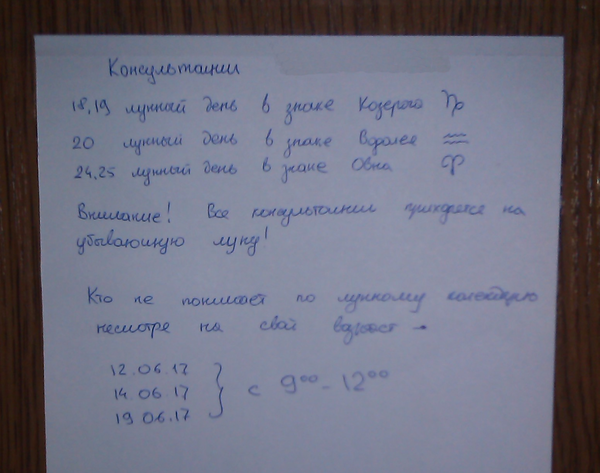 Консультации
18,19 лунный день в знаке Козерога ♑
20 лунный день в знаке Водолея ♒
24,25 лунный день в знаке Овна ♈
Внимание! Все консультации приходятся на
убывающую луну!
Кто не понимает по лунному календарю
несмотря на свой возраст -
12.06.17
14.06.17 } с 9⁰⁰ - 12⁰⁰
19.06.17